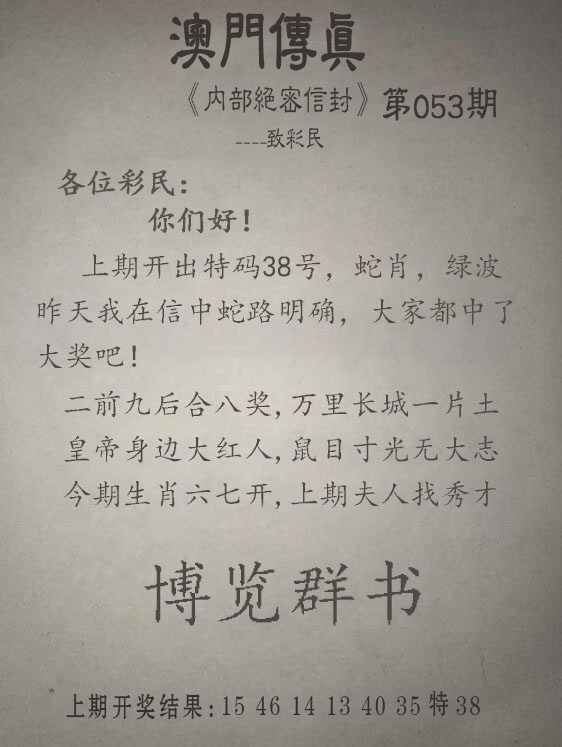 澳門傳眞
《内部絕密信封》第053期
----致彩民
各位彩民：
你们好！
上期开出特码38号，蛇肖，绿波
昨天我在信中蛇路明确，大家都中了
大奖吧！
二前九后合八奖,万里长城一片土
皇帝身边大红人,鼠目寸光无大志
今期生肖六七开,上期夫人找秀才
博览群书
上期开奖结果：15 46 14 13 40 35 特 38